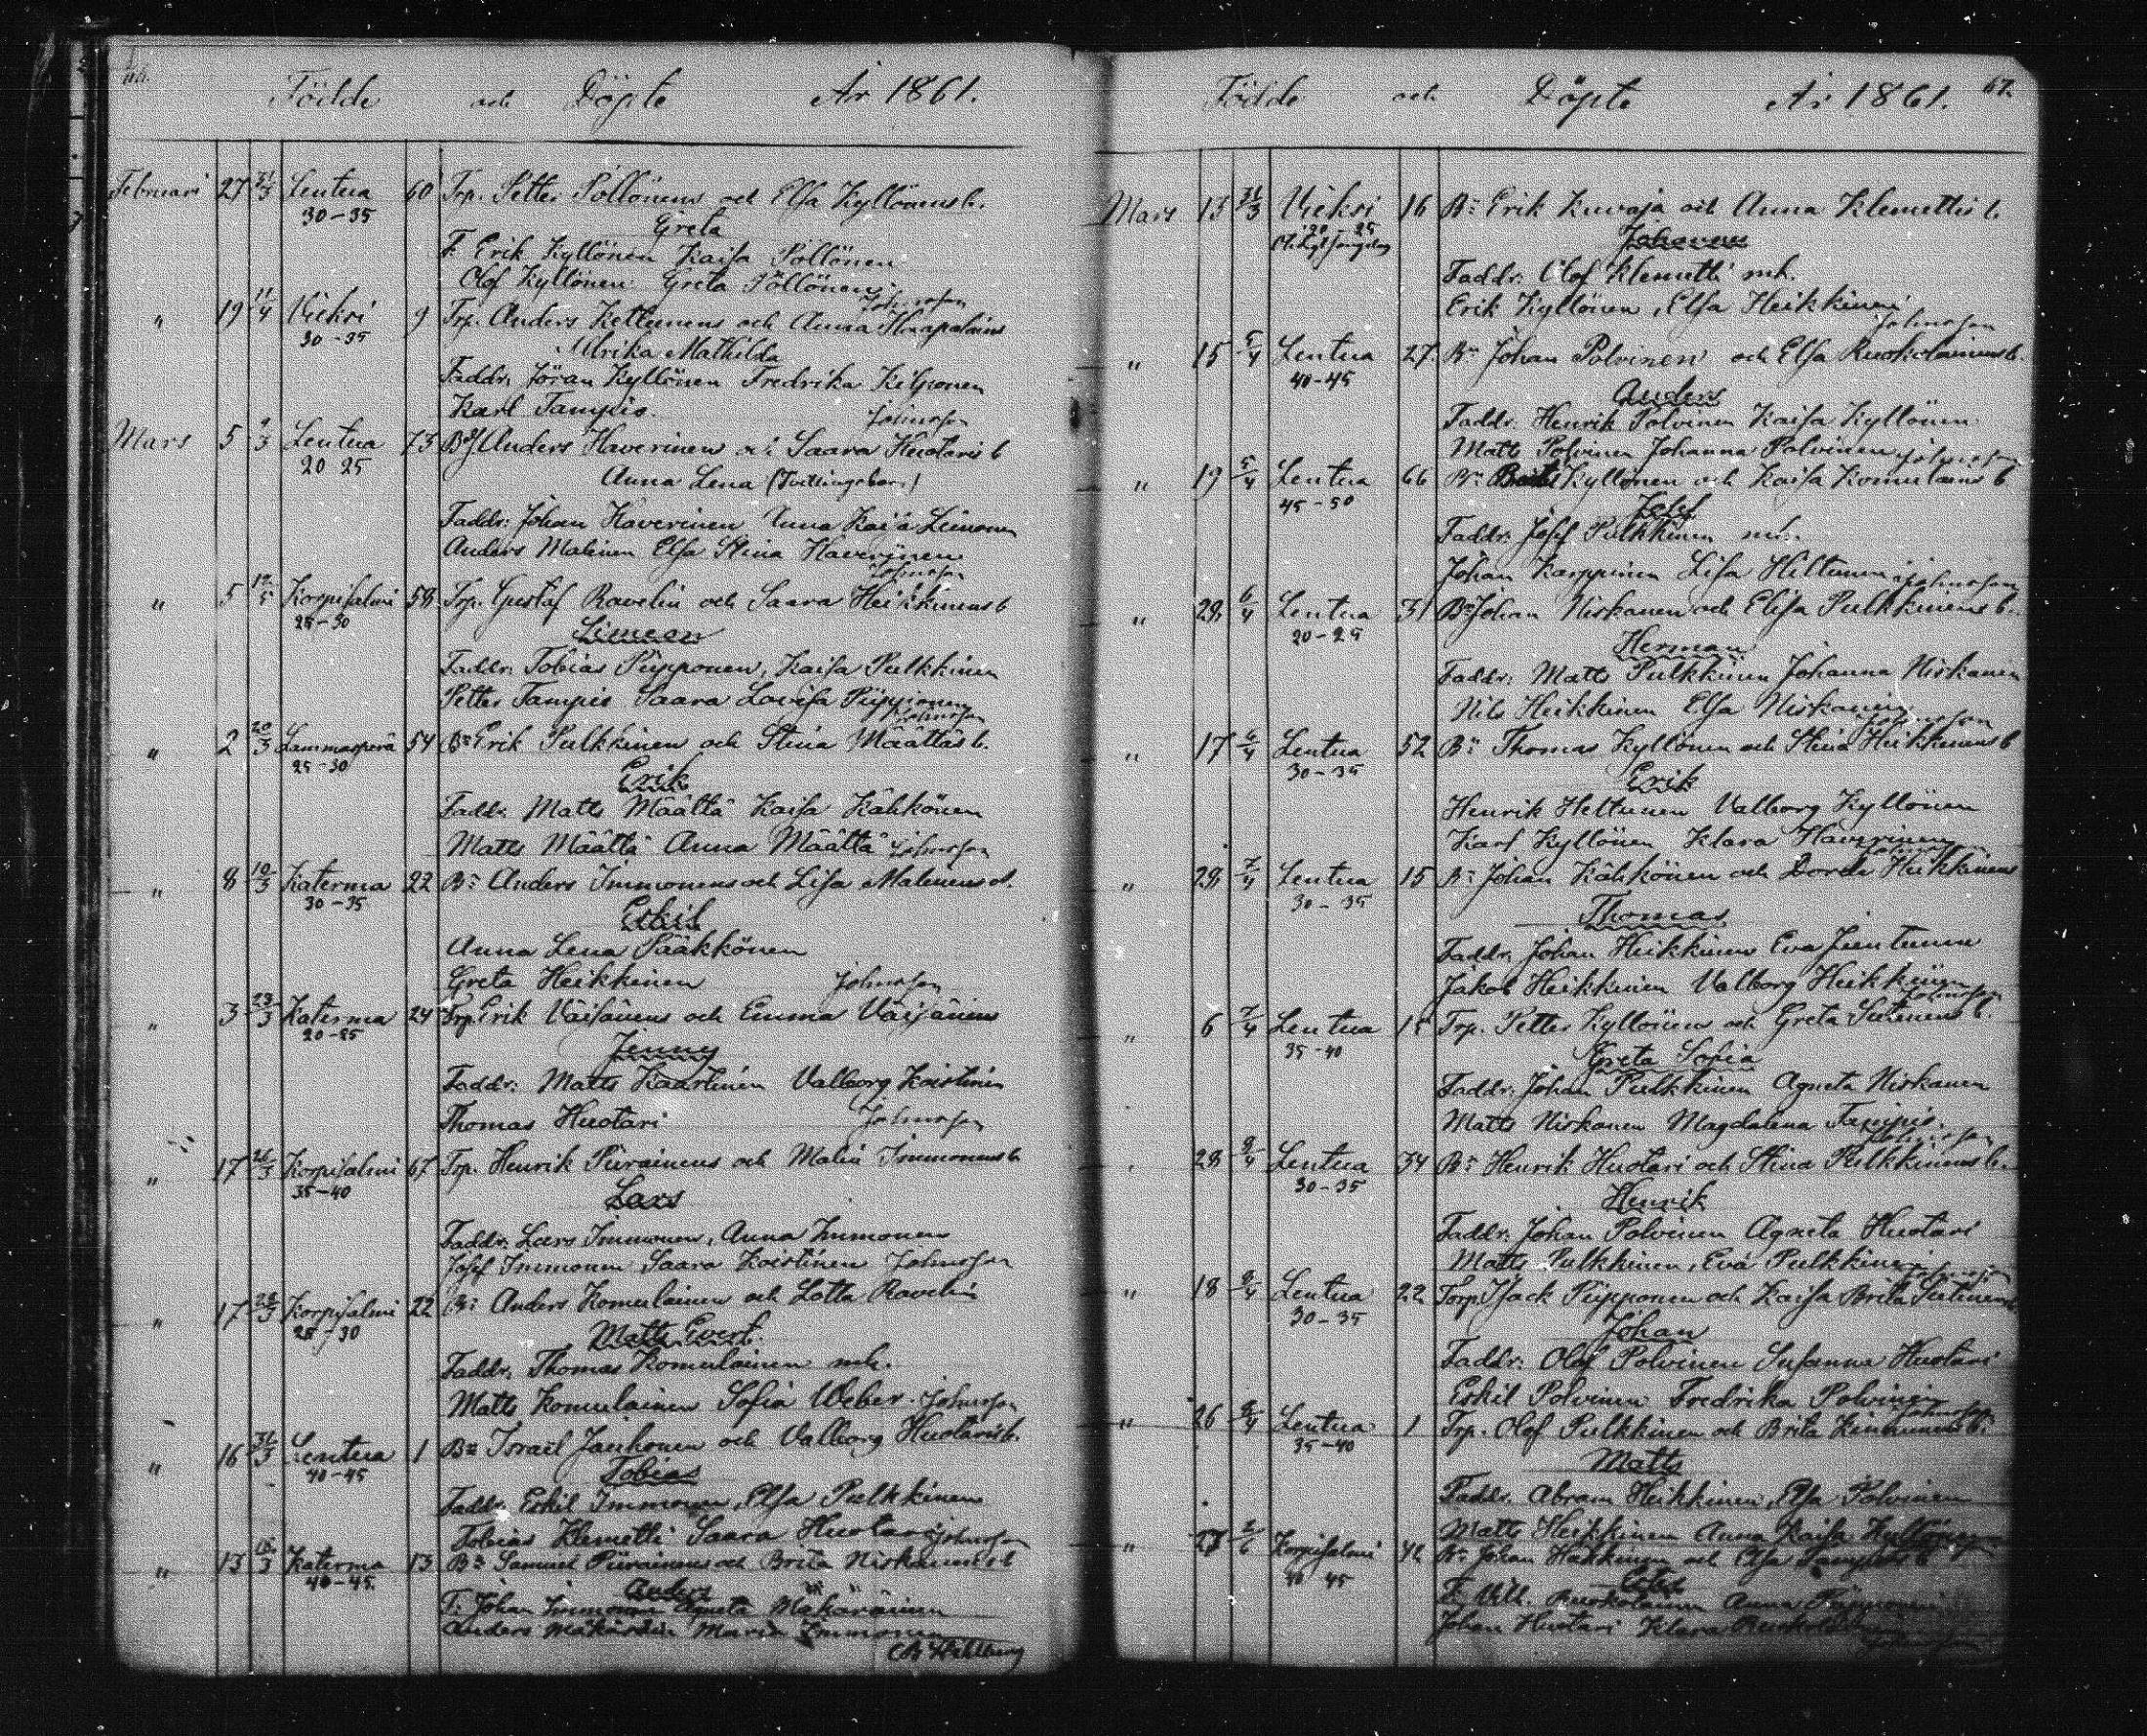 Födde och Döpte År 1861.
Februari 27 31/3 Lentua 60 Trp. Petter Pöllönens och Elsa Kyllönens b.
30-35 Greta
F. Erik Kyllönen Kaisa Pöllönen
Olof Kyllönen Greta Pöllönen
Johnsson
" 19 11/4 Wieksi 9 Trp. Anders Kettunens och Anna Haapalains
30-35 Ulrika Mathilda
Faddr. Jöran Kyllönen Fredrika Kilponen
Karl Tampio. Johnsson
Mars 5 9/3 Lentua 73 Anders Haverinen och Saara Huotaris b
20 25 Anna Lena (Tvillingebarn)
Faddr: Johan Haverinen Anna Kaja Leinonen
Anders Malinen Elsa Stina Haverinen
Johnsson
" 5 Korpisalmi 58 Trp. Gustaf Ravelin och Saara Heikkinens b
25-30 Simeon
Faddr. Tobias Piipponen, Kaisa Pulkkinen
Petter Tampio Saara Lovisa Piipponen
Johnsson
" 2 20/3 Lammasperä 54 Bn Erik Pulkkinen och Stina Määttäs b.
25-30 Erik
Faddr. Matts Määttä Kaisa Kähkönen
Matts Määttä Anna Määttä Johnsson
" 8 10/3 Katerma 22 Bn Anders Immonens och Lisa Malinens
30-35 Eskil
Anna Lena Pääkkönen
Greta Heikkinen Johnsson
" 3 23/3 Katerma 24 Trp Erik Väisänens och Emma Väisänens
20-25 Jenny
Faddr: Matts Kaartinen Valborg Koistinen
Thomas Huotari Johnsson
" 17 Korpisalmi 67 Trp. Henrik Piirainens och Maria Immonens b.
35-40 Lars
Faddr. Lars Immonen, Anna Immonen
Josef Immonen Saara Koistinen Johnsson
" 17 28/3 Korpisalmi 22 Bn Anders Komulainen och Lotta Ravelin
25-30 Matts Evert.
Faddr. Thomas Komulainen mh.
Matts Komulainen Sofia Weber. Johnsson
" 16 31/3 Lentua 1 Bn Israel Jauhonen och Valborg Huotaris b.
40-45 Tobias
Faddr. Eskil Immonen, Elsa Pulkkinen
Tobias Klemetti Saara Huotari Johnsson
" 13 Katerma 13 Bn Samuel Piirainens och Brita Niskanens b
40-45. Anders
F: Johan Immonen Agneta Mäkäräinen
Anders Mäkäräin Maria Immonen
Födde och Döpte År 1861. 67.
Mars 13 31/3 Wieksi 16 Bn Erik Kuvaja och Anna Klemettis b.
20-25 Johannes
Faddr. Olof Klemetti mh.
Erik Kyllönen, Elsa Heikkinen
Johnsson
" 15 5/4 Lentua 27. Bn Johan Polvinen och Elsa Ruokolainens b.
40-45 Anders
Faddr. Henrik Polvinen Kaisa Kyllönen
Matts Polvinen Johanna Polvinen Johnsson
" 19 5/4 Lentua 66 Bn Kyllönen och Kaisa Komulains b
45-50 Josef
Faddr. Josef Pulkkinen mh.
Johan Karppinen Lisa Hiltunen Johnsson
" 28 6/4 Lentua 31 Bn Johan Niskanen och Elisa Pulkkinens b.
20-25 Herman
Faddr: Matts Pulkkinen Johanna Niskanen
Nils Heikkinen Elsa Niskanen
Johnsson
" 17 6/4 Lentua 52 Bn Thomas Kyllönen och Stina Heikkinens b
30-35 Erik
Henrik Heltunen Valborg Kyllönen
Karl Kyllönen Klara Haverinen
Johnsson
" 28 7/4 Lentua 15 Bn Johan Kähkönen och Dordi Heikkinens
30-35 Thomas
Faddr. Johan Heikkinen Eva Juntunen
Jakob Heikkinen Valborg Heikkinen
Johnsson
" 6 7/4 Lentua 15 Trp. Petter Kyllönen och Greta Sutinens b.
35-40 Greta Sofia
Faddr. Johan Pulkkinen Agneta Niskanen
Matts Niskanen Magdalena Tampio.
Johnsson
28 8/4 Lentua 34 Bn Henrik Huotari och Stina Pulkkinens b.
30-35 Henrik
Faddr. Johan Polvinen Agneta Huotari
Matts Pulkkinen, Eva Pulkkinen
Johnsson
" 18 8/4 Lentua 22 Torp. Isack Piipponen och Kaisa Brita Sutinens
30-35 Johan
Faddr. Olof Polvinen Susanna Huotari
Eskil Polvinen Fredrika Polvinen
Johnsson
" 26 8/4 Lentua 1 Trp. Olof Pulkkinen och Brita Kinnunens b.
35-40 Matts
Faddr. Abram Heikkinen, Elsa Polvinen
Matts Heikkinen Anna Kaisa Kyllönen
" 27 Korpisalmi 42 Bn Johan Häkkinen och Elsa
40 45
F. Vilh. Ruokolainen Anna Piipponen
Johan Huotari Klara Ruokolainen
Johnsson